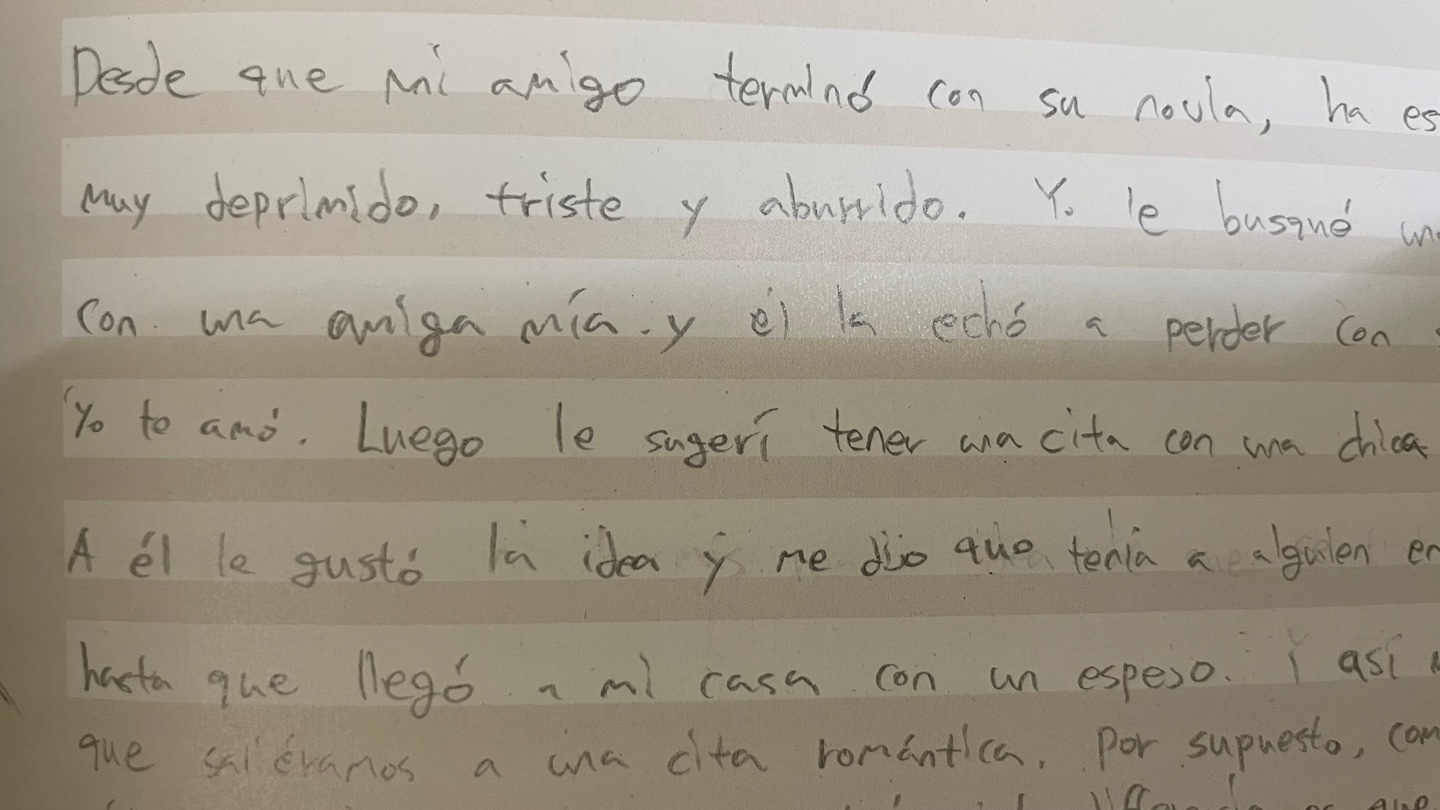 Desde que mi amigo terminó con su novia, ha es
muy deprimido, triste y aburrido. Yo le busqué un
con una amiga mía y él la echó a perder con
Yo te amó. Luego le sugerí tener una cita con una chica
A él le gustó la idea y me dijo que tenía a alguien en
hasta que llegó a mi casa con un espeso. Y así
que saliéramos a una cita romántica. Por supuesto, com